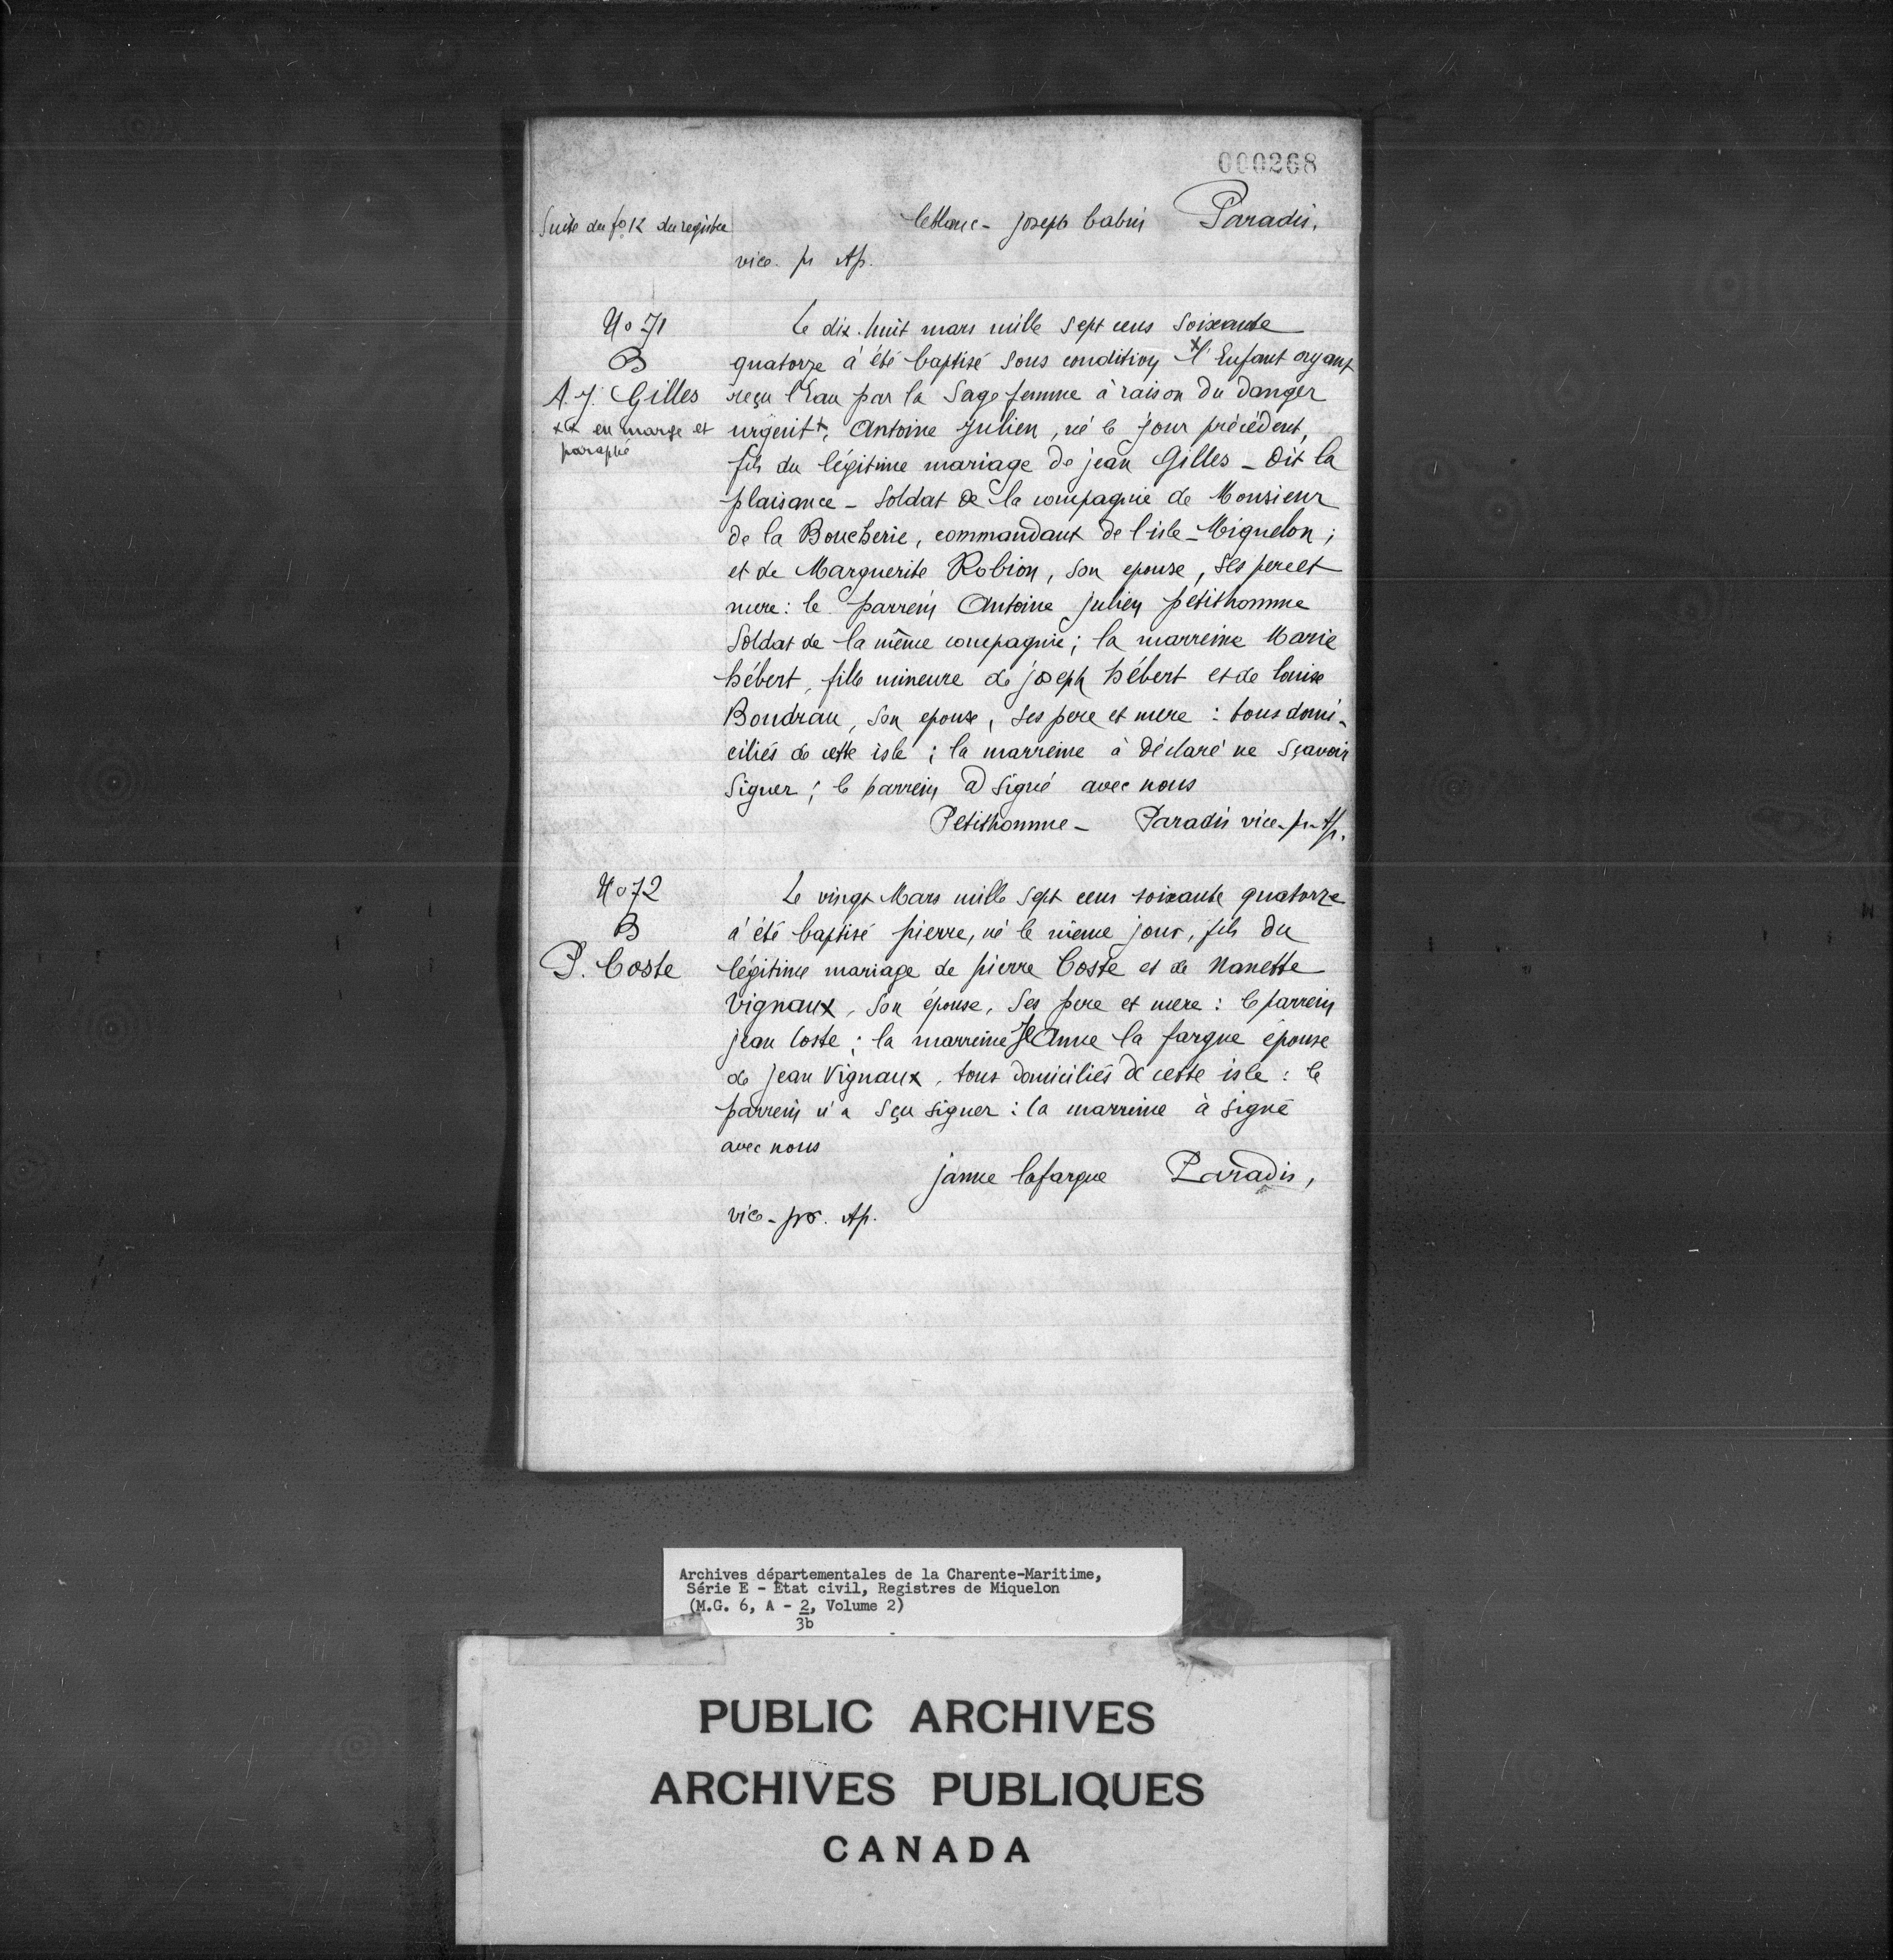 000268
Suite du fo 12 du registre
leblanc - joseph babin Paradis,
vice. pr Ap.
No 71
B
A. J. Gilles
++ en marge et
paraphé
Le dix-huit mars mille sept cens soixante
quatorze à été baptisé sous condition +l'Enfant ayant
reçu l'Eau par la Sage femme à raison du danger
urgent+, Antoine Julien, né le jour précédent,
fils du légitime mariage de jean Gilles - Dit la
plaisance - Soldat de la compagnie de Monsieur
de la Boucherie, commandant de l'isle - Miquelon ;
et de Marguerite Robion, son epouse, ses pere et
mere : le parrein Antoine julien petithomme
Soldat de la même compagnie ; la marreine Marie
hébert, fille mineure de joseph hébert et de louise
Boudrau, son epouse, ses pere et mere : tous domi-
ciliés de cette isle ; la marreine à déclaré ne sçavoir
signer ; le parrein a signé avec nous
Petithomme - Paradis vice-pr-Ap.
No 72
B
P. Coste
Le vingt Mars mille sept cens soixante quatorze
à été baptisé pierre, né le même jour, fils du
légitime mariage de pierre Coste et de Nanette
Vignaux, son épouse, ses pere et mere : le parrein
jean Coste ; la marreine Jeanne la fargue épouse
de jean Vignaux, tous domiciliés de cette isle : le
parrein n'a sçu signer : la marreine à signé
avec nous
janne lafargue Paradis,
vice - pr. Ap.
Archives départementales de la Charente-Maritime,
Série E - Etat civil, Registres de Miquelon
(M.G. 6, A - 2, Volume 2)
3b
PUBLIC ARCHIVES
ARCHIVES PUBLIQUES
CANADA